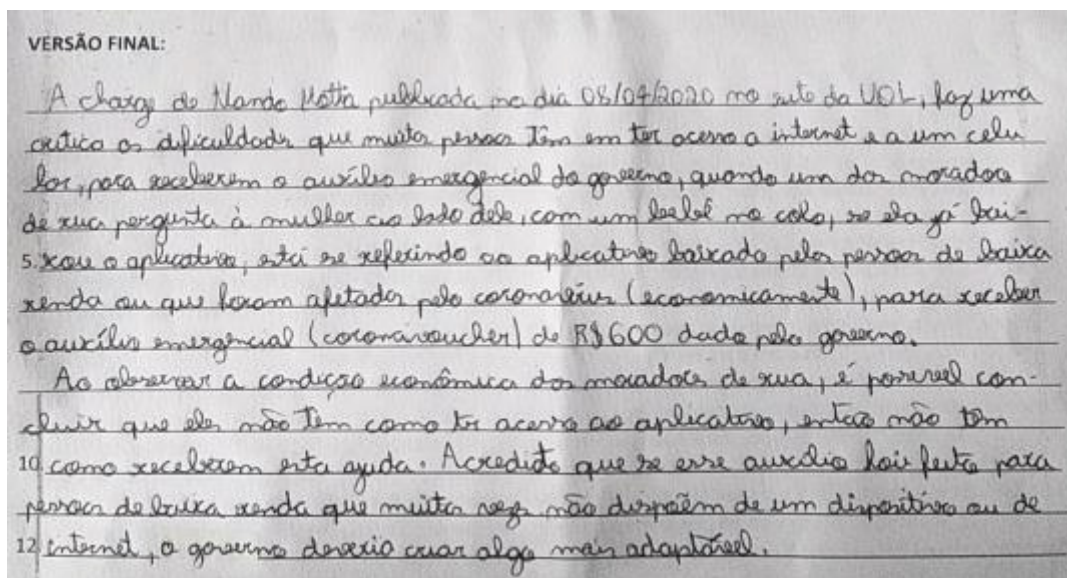 VERSÃO FINAL:
A charge de Nando Motta publicada no dia 08/04/2020 no site da UOL, faz uma
crítica as dificuldades que muitas pessoas têm em ter acesso a internet e a um celu
lar, para receberem o auxílio emergencial do governo, quando um dos moradores
de rua pergunta à mulher ao lado dele, com um bebê no colo, se ela já bai-
5. xou o aplicativo, está se referindo ao aplicativo baixado pelas pessoas de baixa
renda ou que foram afetadas pelo coronavírus (economicamente), para receber
o auxílio emergencial (coronavoucher) de R$600 dado pelo governo.
Ao observar a condição econômica dos moradores de rua, é possível con-
cluir que eles não têm como ter acesso ao aplicativo, então não têm
10 como receberem esta ajuda. Acredito que se esse auxílio foi feito para
pessoas de baixa renda que muitas vezes não dispõem de um dispositivo ou de
12 internet, o governo deveria criar algo mais adaptável.